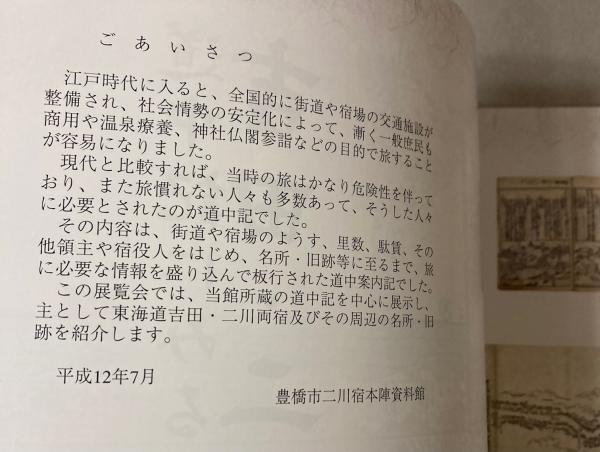 ごあいさつ
江戸時代に入ると、全国的に街道や宿場の交通施設が
整備され、社会情勢の安定化によって、漸く一般庶民も
商用や温泉療養、神社仏閣参詣などの目的で旅すること
が容易になりました。
現代と比較すれば、当時の旅はかなり危険性を伴って
おり、また旅慣れない人々も多数あって、そうした人々
に必要とされたのが道中記でした。
その内容は、街道や宿場のようす、里数、駄賃、その
他領主や宿役人をはじめ、名所・旧跡等に至るまで、旅
に必要な情報を盛り込んで板行された道中案内記でした。
この展覧会では、当館所蔵の道中記を中心に展示し、
主として東海道吉田・二川両宿及びその周辺の名所・旧
跡を紹介します。
平成12年7月
豊橋市二川宿本陣資料館